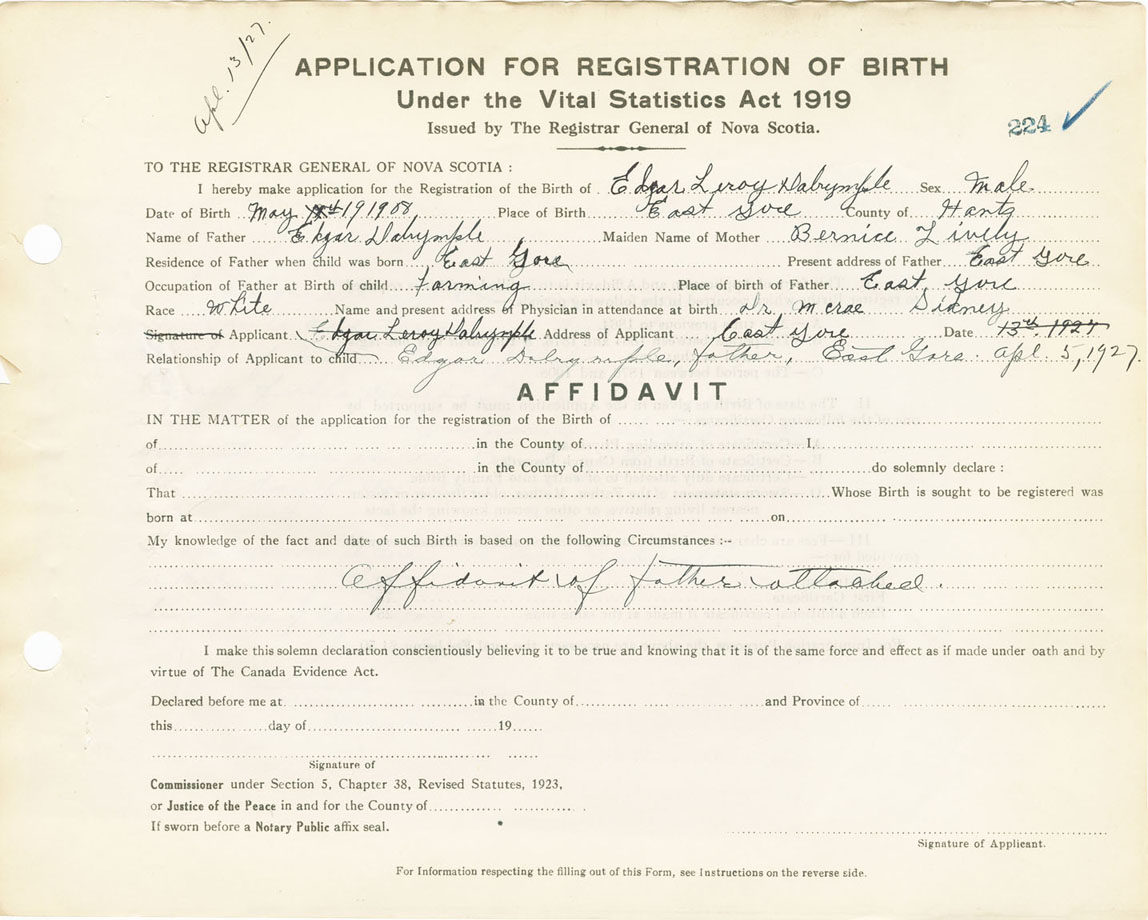 Apl. 13/27.
APPLICATION FOR REGISTRATION OF BIRTH
Under the Vital Statistics Act 1919
Issued by The Registrar General of Nova Scotia.
224 ✓
TO THE REGISTRAR GENERAL OF NOVA SCOTIA :
I hereby make application for the Registration of the Birth of Edgar Leroy Dalrymple Sex Male
Date of Birth May 19 1908 Place of Birth East Gore County of Hants
Name of Father Edgar Dalrymple Maiden Name of Mother Bernice Lively
Residence of Father when child was born East Gore Present address of Father East Gore
Occupation of Father at Birth of child Farming Place of birth of Father East Gore
Race White Name and present address of Physician in attendance at birth Dr. Mcrae Sidney
Signature of Applicant Edgar Leroy Dalrymple Address of Applicant East Gore Date 13th 1927
Relationship of Applicant to child Edgar Dalrymple, father, East Gore. Apl. 5, 1927.
AFFIDAVIT
IN THE MATTER of the application for the registration of the Birth of
of in the County of I,
of in the County of do solemnly declare :
That Whose Birth is sought to be registered was
born at on
My knowledge of the fact and date of such Birth is based on the following Circumstances :--
Affidavit of father attached.
I make this solemn declaration conscientiously believing it to be true and knowing that it is of the same force and effect as if made under oath and by
virtue of The Canada Evidence Act.
Declared before me at in the County of and Province of
this day of 19
Signature of
Commissioner under Section 5, Chapter 38, Revised Statutes, 1923,
or Justice of the Peace in and for the County of
If sworn before a Notary Public affix seal.
Signature of Applicant.
For Information respecting the filling out of this Form, see Instructions on the reverse side.